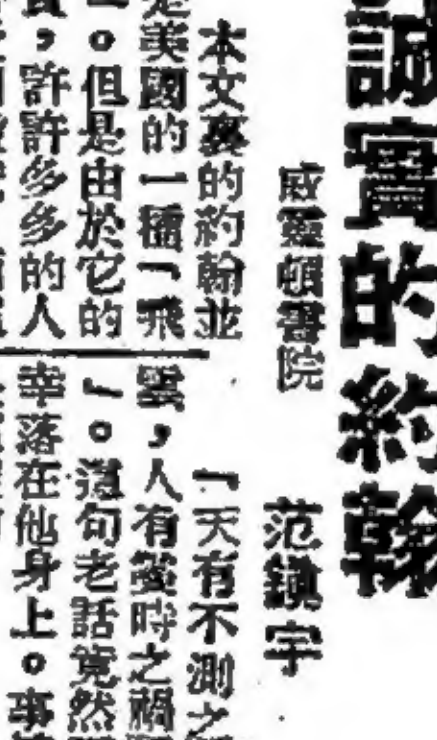 誠實的約翰
威靈頓書院
范鎮宇
本文裏的約翰並
是美國的一種「飛
」。但是由於它的
,許許多多的人
「天有不測之
雲,人有暫時之禍
」。這句老話竟然
幸落在他身上。事